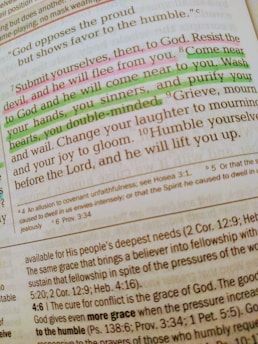 but does another,
"God opposes the proud
but shows favor to the humble."ᶜ
⁷Submit yourselves, then, to God. Resist the
devil, and he will flee from you. ⁸Come near
to God and he will come near to you. Wash
your hands, you sinners, and purify your
hearts, you double-minded. ⁹Grieve, mourn
and wail. Change your laughter to mourning
and your joy to gloom. ¹⁰Humble yourselves
before the Lord, and he will lift you up.
ᵃ 4 An allusion to covenant unfaithfulness; see Hosea 3:1. ᵇ 5 Or that the
caused to dwell in us envies intensely; or that the Spirit he caused to dwell in
jealously ᶜ 6 Prov. 3:34
available for His people's deepest needs (2 Cor. 12:9; Heb
The same grace that brings a believer into fellowship with
sustain that fellowship in spite of the pressures of the wo
5:20; 2 Cor. 12:9; Heb. 4:16).
4:6 | The cure for conflict is the grace of God. The good
God gives even more grace when the pressure increase
to the humble (Ps. 138:6; Prov. 3:34; 1 Pet. 5:5). Go
responsive to the prayers of those who humbly reque